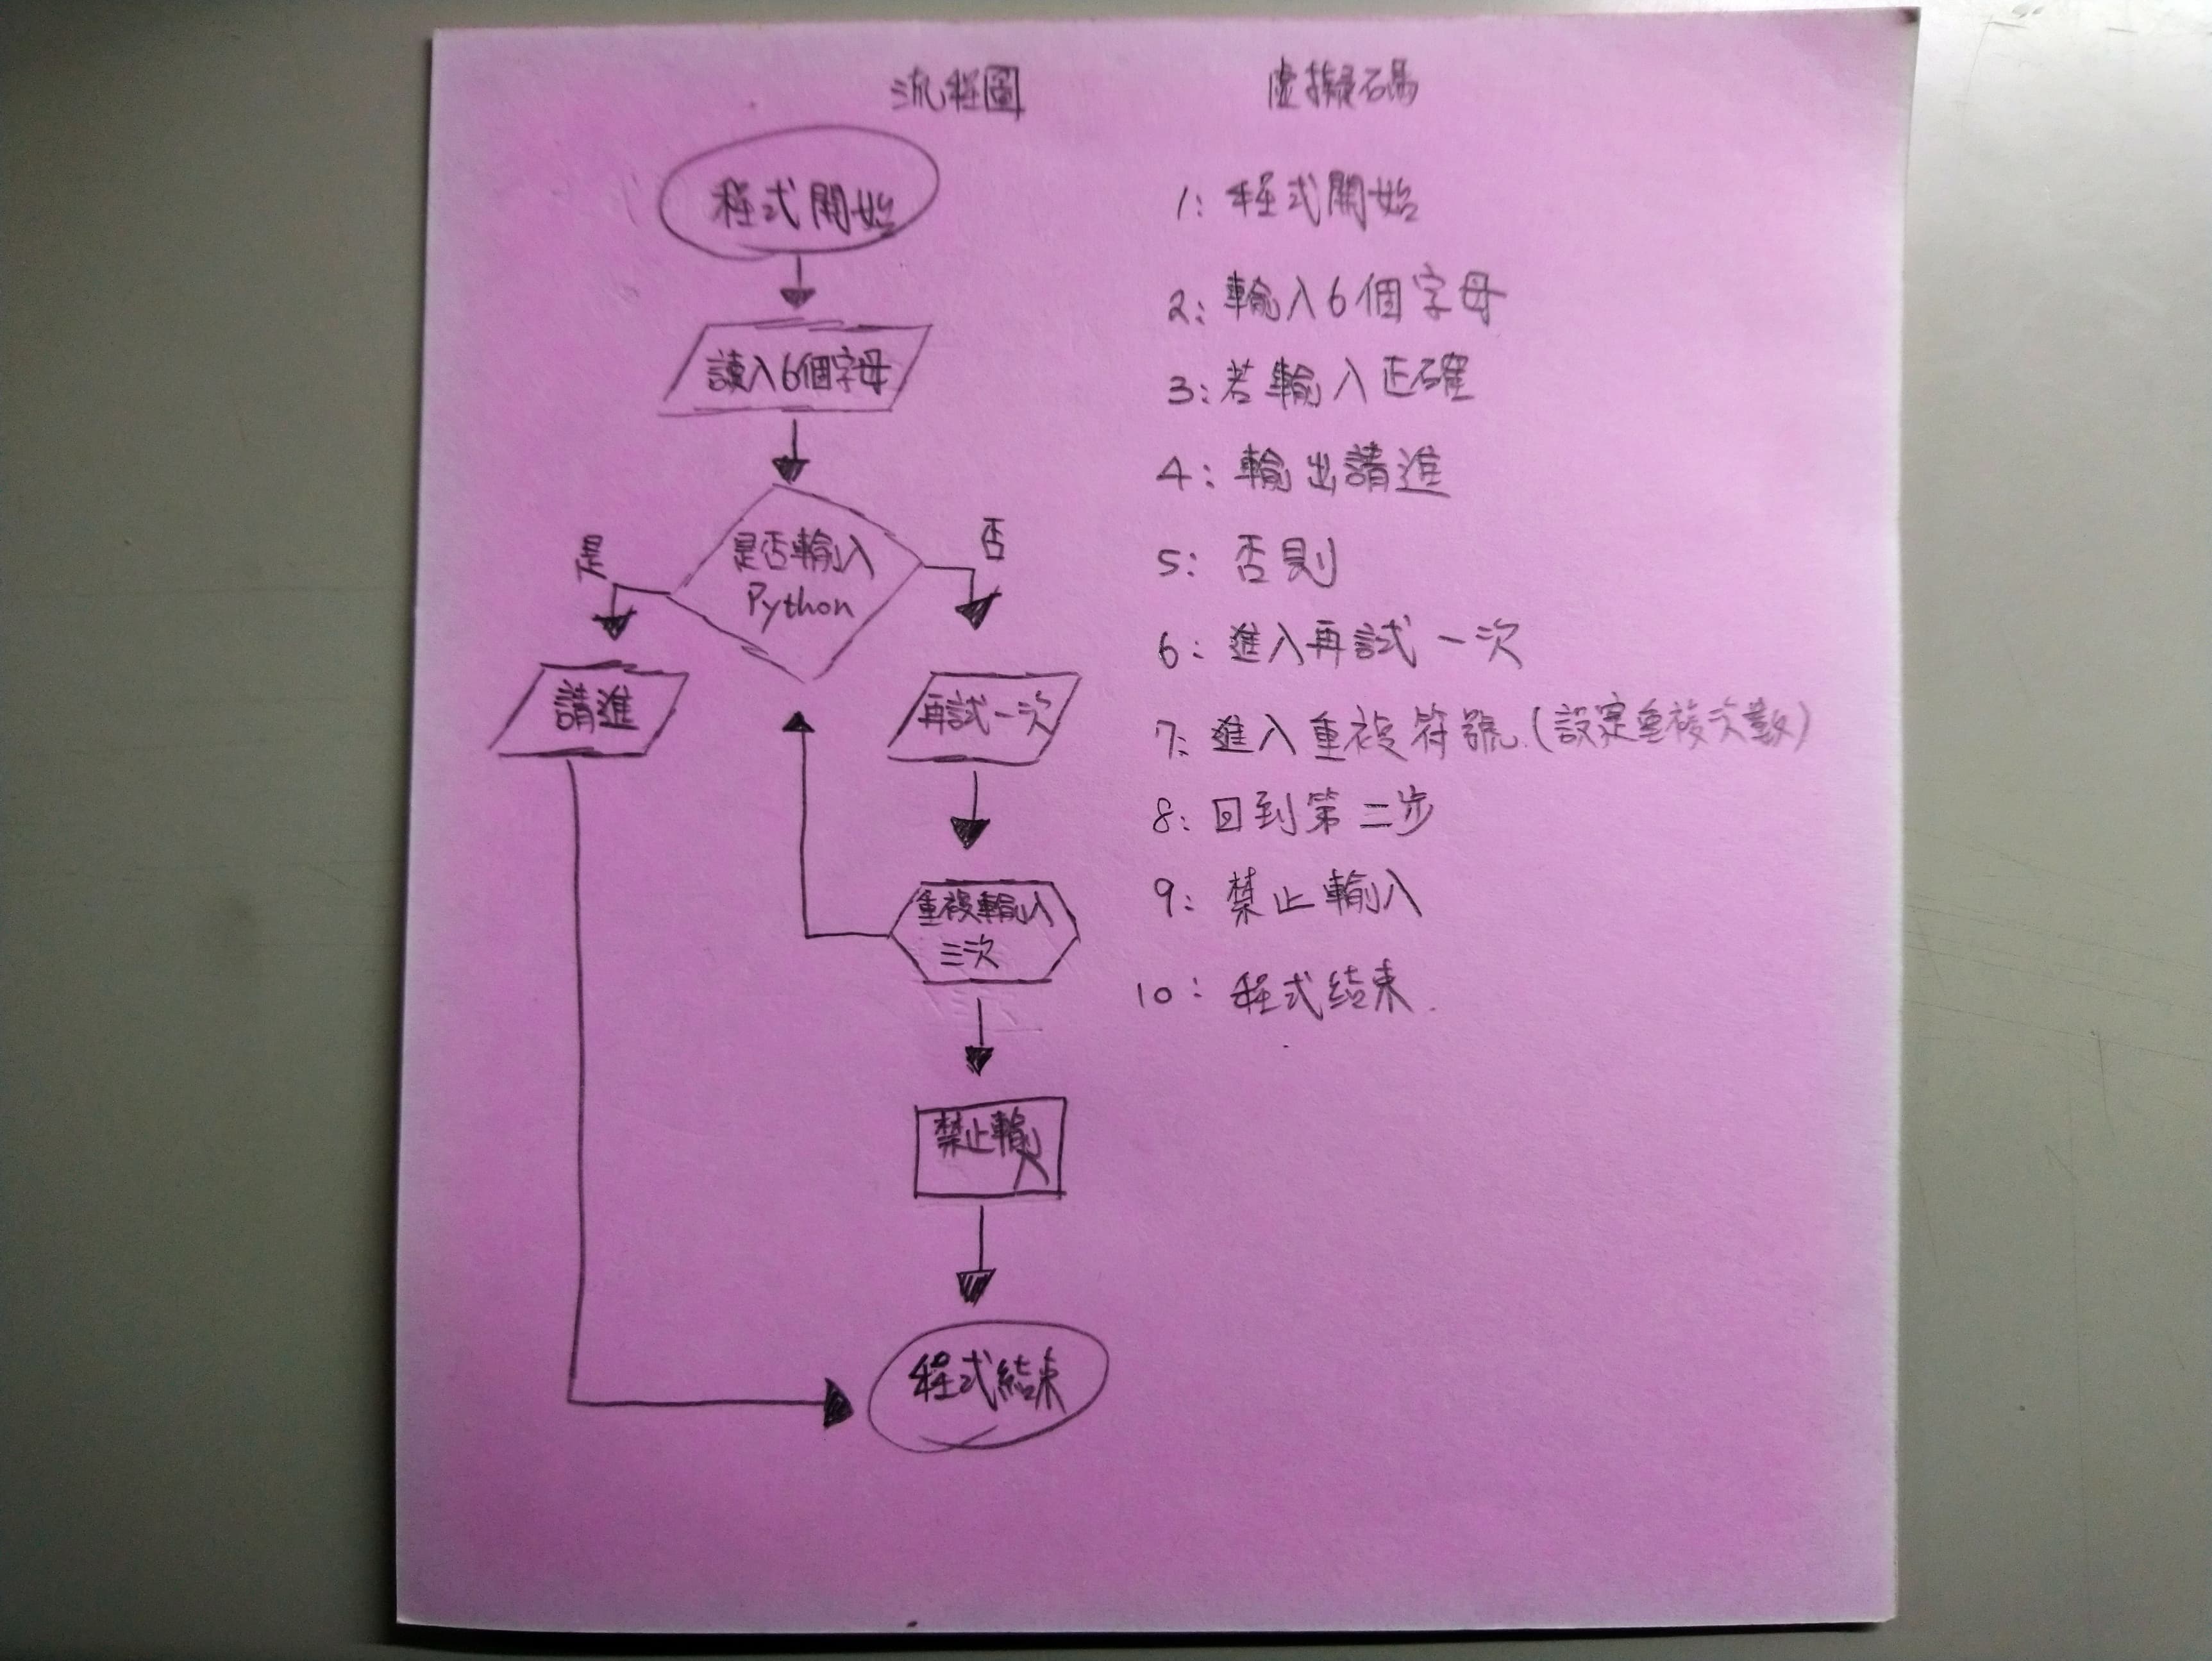 流程圖
程式開始
讀入6個字母
是否輸入
Python
是
否
請進
再試一次
重複輸入
三次
禁止輸入
程式結束
虛擬碼
1: 程式開始
2: 輸入6個字母
3: 若輸入正確
4: 輸出請進
5: 否則
6: 進入再試一次
7: 進入重複符號.(設定重複次數)
8: 回到第二步
9: 禁止輸入
10: 程式結束.